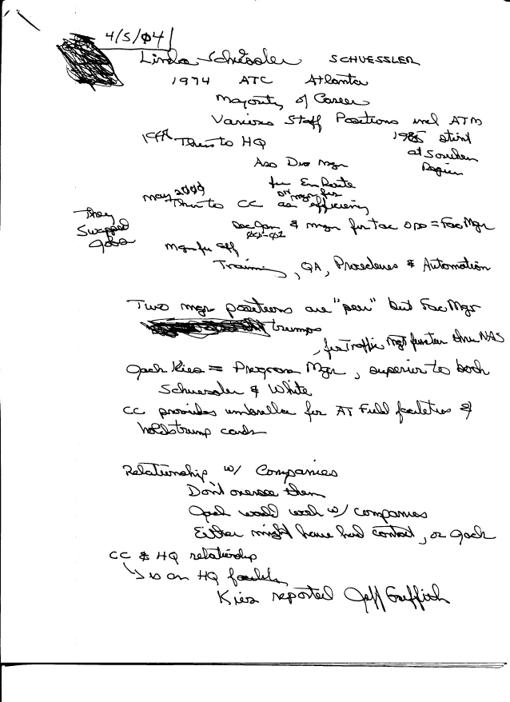 4/5/04
Linda Schuessler SCHUESSLER
1974 ATC Atlanta
Majority of Career
Various Staff Positions incl ATM
1985 stint at Southern Region
Then to HQ
Ass Div Mgr
for En Route
May 2000 Then to CC as mgr for efficiency
They Swapped Jobs
Dec-Jan 01-02 & mgr for Tac Ops = Fac Mgr
Mgr for eff
Training, QA, Procedures & Automation
Two mgr positions are "peer" but Fac Mgr
trumps
, for Traffic Mgt function thru NAS
Jack Kies = Program Mgr, superior to both
Schuessler & White
CC provides umbrella for AT Field facilities &
holds trump cards
Relationship w/ Companies
Don't oversee them
Jack would work w/ companies
Either might have had contact, or Jack
CC & HQ relationship
is an HQ facility
Kies reported Jeff Griffith